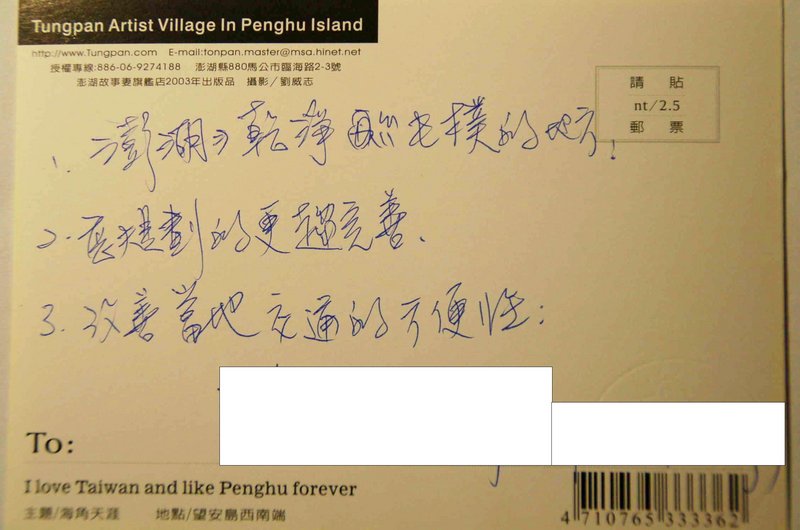 Tungpan Artist Village In Penghu Island
http://www.Tungpan.com E-mail:tonpan.master@msa.hinet.net
授權專線:886-06-9274188 澎湖縣880馬公市臨海路2-3號
澎湖故事妻旗艦店2003年出版品 攝影/劉威志
請貼
nt/2.5
郵票
1. 澎湖 乾淨 樸的地方!
2. 規劃的更趨完善、
3. 改善當地交通的方便性:
To:
I love Taiwan and like Penghu forever
主題/海角天涯 地點/望安島西南端
4 710765 333362